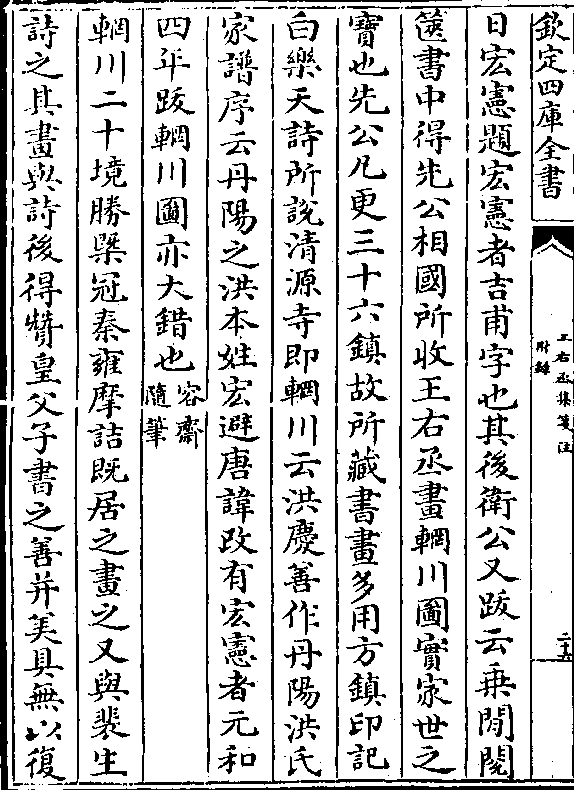 欽定四庫全書
王右丞集箋注
附錄
二十六
日宏憲題宏憲者吉甫字也其後衛公又跋云乗閒閱
篋書中得先公相國所收王右丞畫輞川圖實家世之
寶也先公凡更三十六鎮故所藏書畫多用方鎮印記
白樂天詩所說清源寺即輞川云洪慶善作丹陽洪氏
家譜序云丹陽之洪本姓宏避唐諱改有宏憲者元和
四年跋輞川圖亦大錯也容齋
隨筆
輞川二十境勝槩冠秦雍摩詰既居之畫之又與裴生
詩之其畫與詩後得贊皇父子書之善并美具無以復